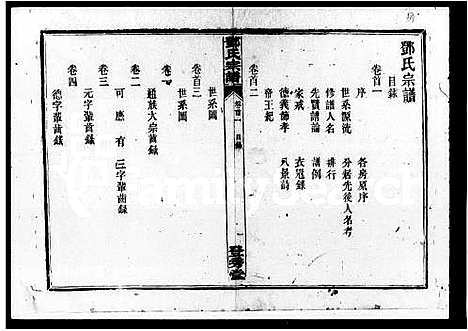 鄧氏宗譜
目錄
卷首一
序 各房原序
世系源流 分遷先後人名考
修譜人名 排行
先賢譜論 譜例
家戒 衣冠錄
德義節孝 八景詩
帝王記
卷首二
鄧氏宗譜
卷首一 目錄
登秀堂
世系圖
卷首三
世系圖
卷一
通族大宗齒錄
卷二
可應有三字輩齒錄
卷三
元字輩齒錄
卷四
德字輩齒錄
FamilySearch